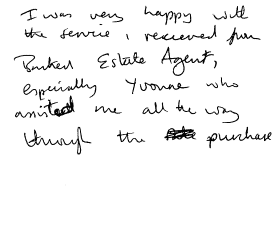 I was very happy with
the service i received from
Bankend Estate Agent,
especially Yvonne who
assisted me all the way
through the purchase